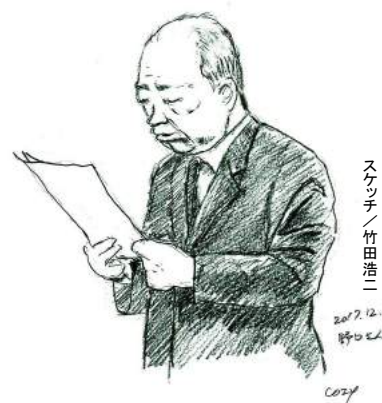 スケッチ／竹田浩二
2017.12.
野口さん
COZY